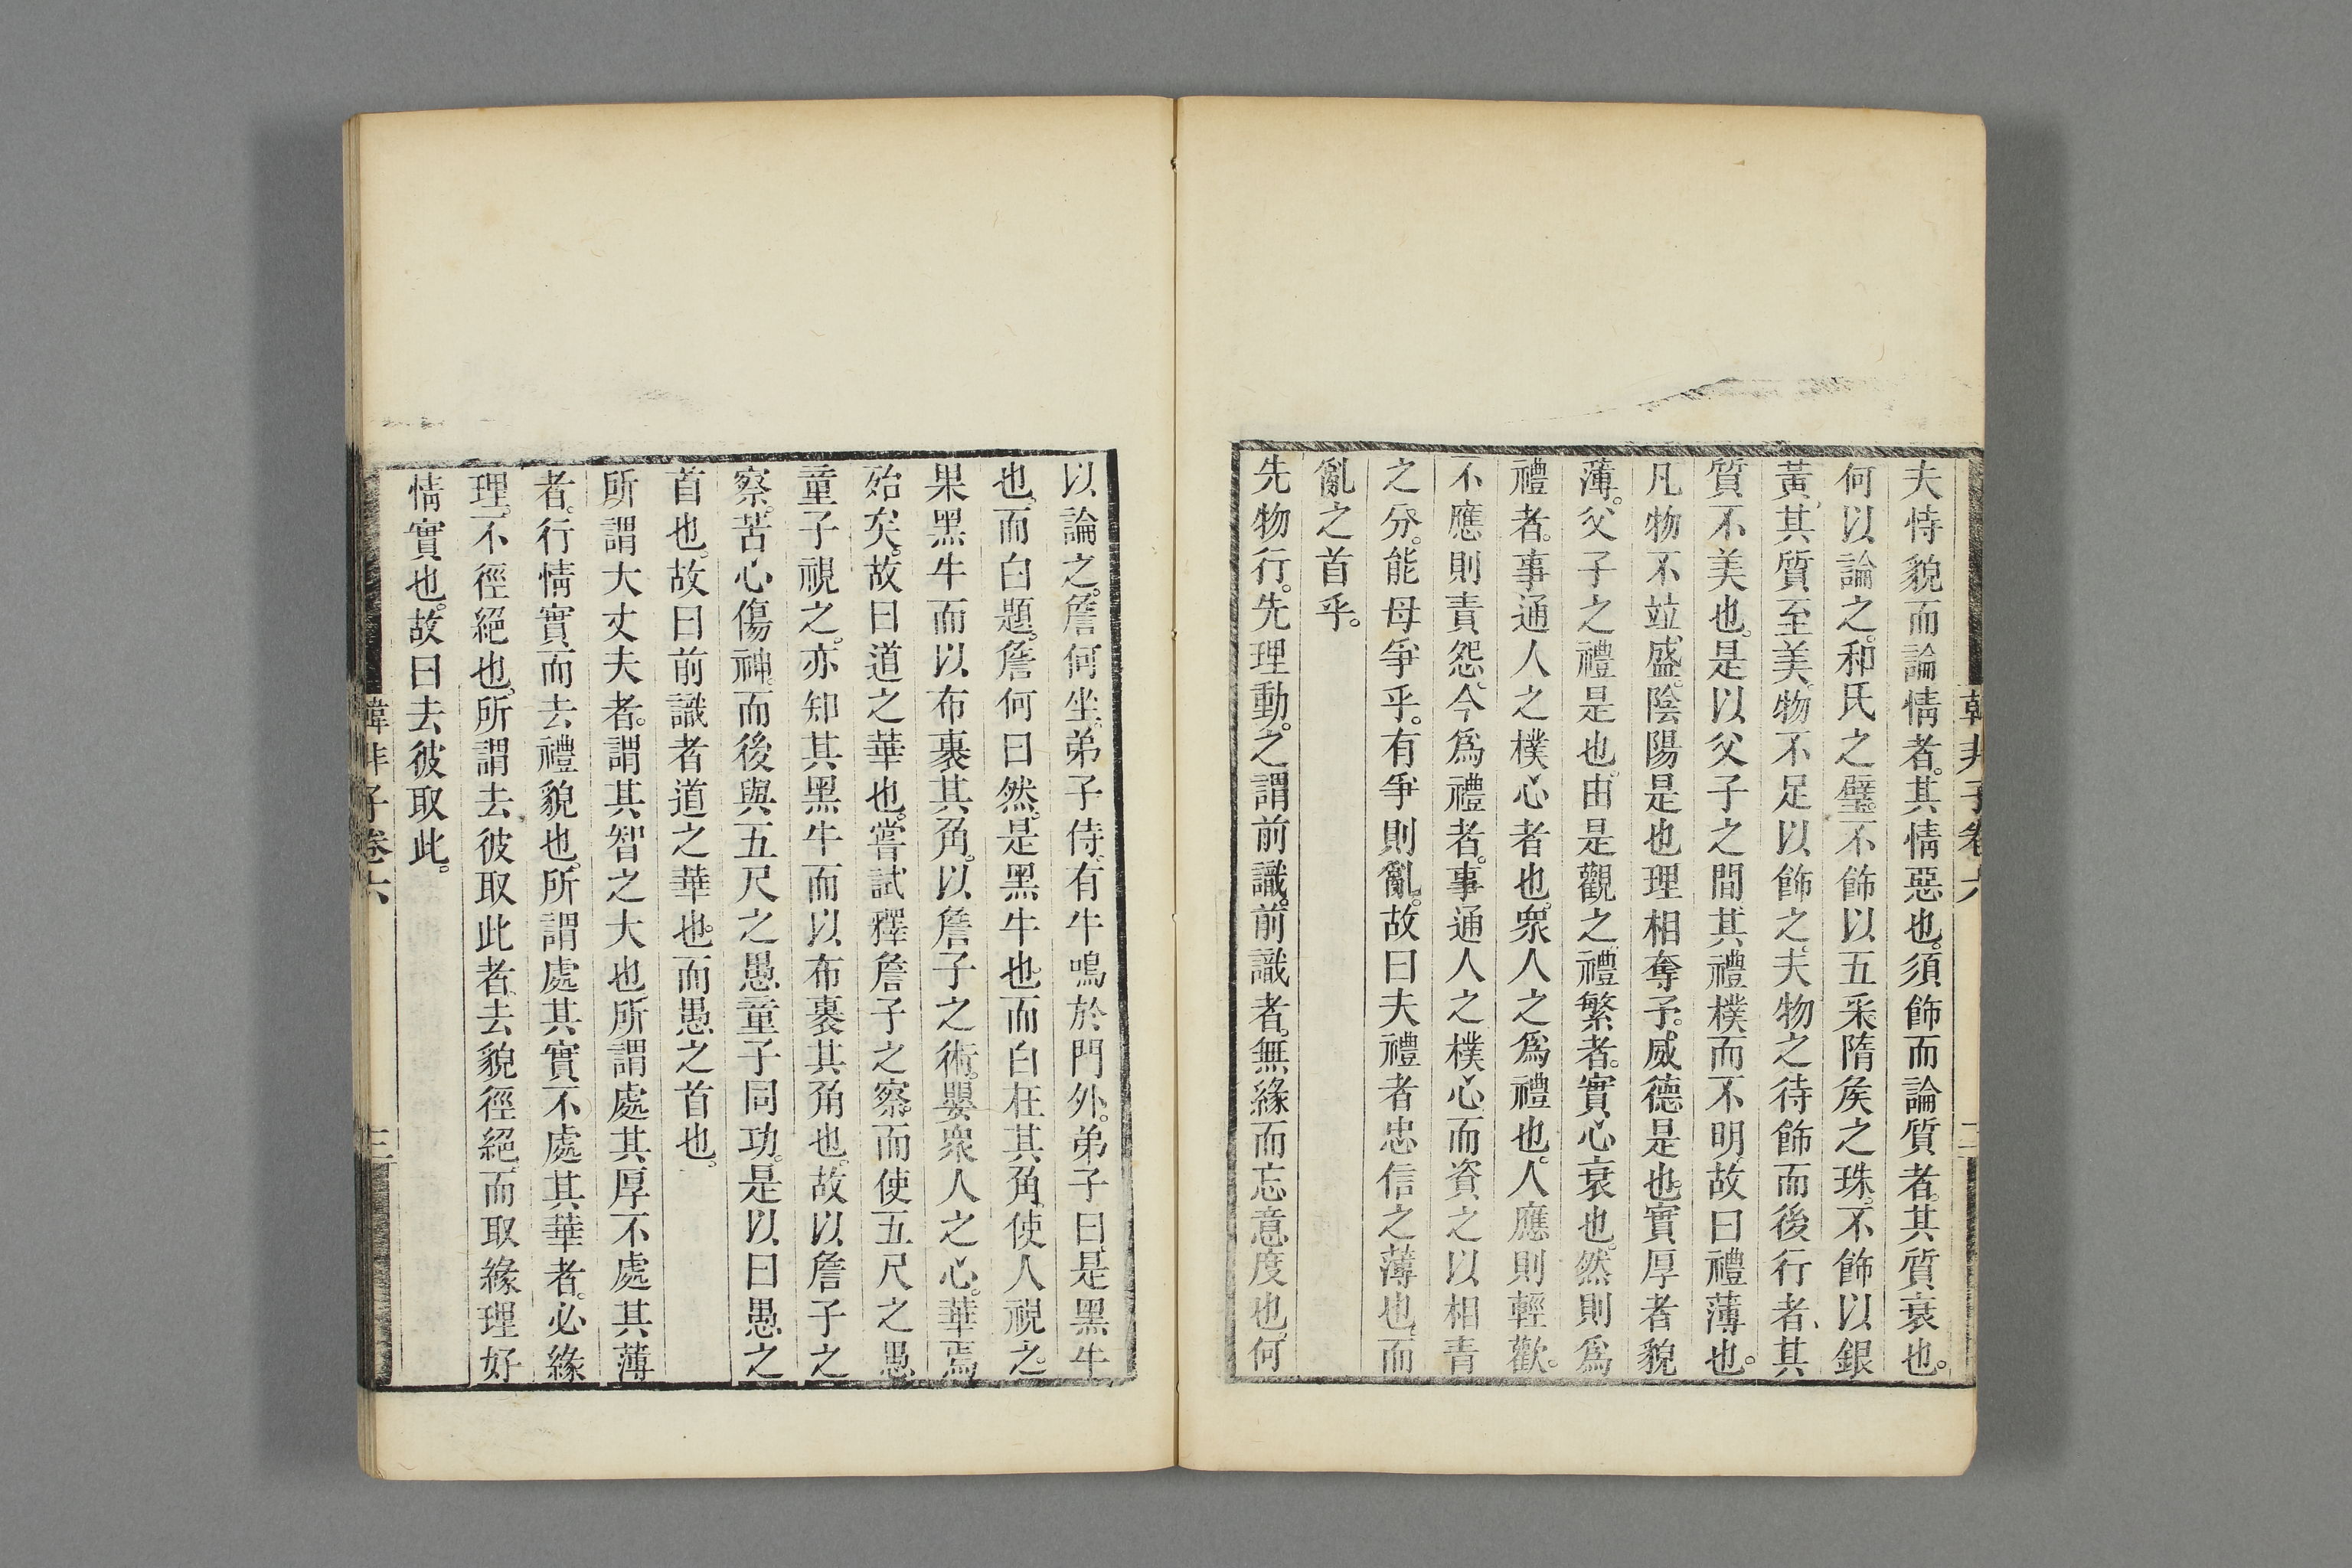 韓非子卷六
二
夫恃貌而論情者。其情惡也。須飾而論質者。其質衰也。
何以論之。和氏之璧。不飾以五采。隋矦之珠。不飾以銀
黃。其質至美。物不足以飾之。夫物之待飾而後行者、其
質不美也。是以父子之間。其禮樸而不明。故曰禮薄也。
凡物不竝盛。陰陽是也。理相奪予。威德是也。實厚者貌
薄。父子之禮是也。由是觀之。禮繁者。實心衰也。然則爲
禮者。事通人之樸心者也。衆人之爲禮也。人應則輕歡。
不應則責怨。今爲禮者。事通人之樸心。而資之以相責
之分。能毋爭乎。有爭則亂。故曰夫禮者忠信之薄也。而
亂之首乎。
先物行。先理動。之謂前識。前識者。無緣而忘意度也。何
以論之。詹何坐。弟子侍。有牛鳴於門外。弟子曰。是黑牛
也。而白題。詹何曰然。是黑牛也。而白在其角。使人視之。
果黑牛而以布裹其角。以詹子之術。嬰衆人之心。華焉
殆矣。故曰道之華也。嘗試釋詹子之察。而使五尺之愚
童子視之。亦知其黑牛而以布裹其角也。故以詹子之
察。苦心傷神。而後與五尺之愚童子同功。是以曰愚之
首也。故曰前識者道之華也。而愚之首也。
所謂大丈夫者。謂其智之大也。所謂處其厚不處其薄
者。行情實而去禮貌也。所謂處其實不處其華者。必緣
理。不徑絕也。所謂去彼取此者。去貌徑絕。而取緣理好
情實也。故曰去彼取此。
韓非子卷六
三